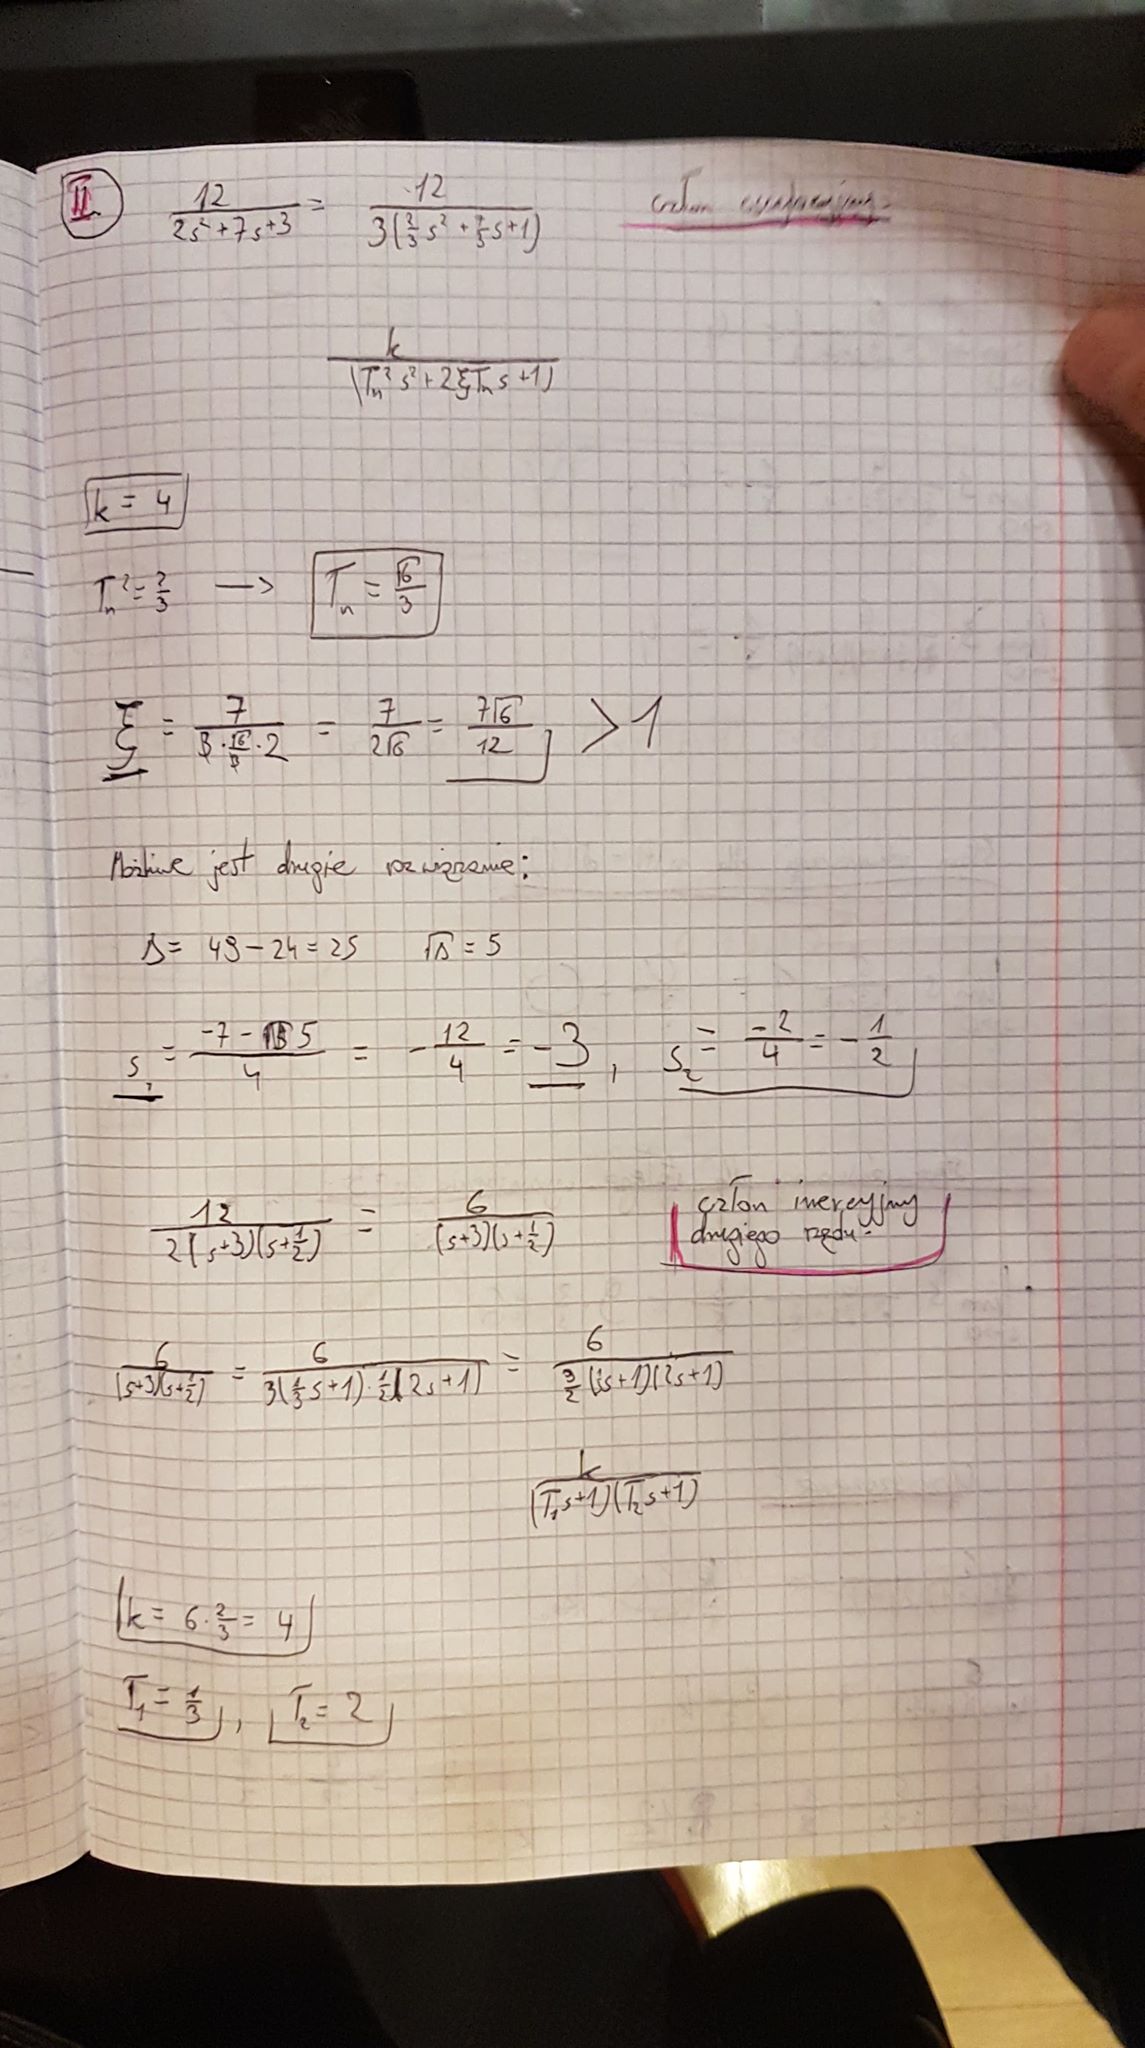 II 12/(2s²+7s+3) = 12/(3(2/3 s² + 7/3 s+1)) człon
k/(Tₙ²s²+2ξTₙs+1)
k = 4
Tₙ² = 2/3 —> Tₙ = √6/3
ξ = 7/(3·√6/3·2) = 7/(2√6) = 7√6/12 > 1
Możliwe jest drugie rozwiązanie:
Δ = 49 - 24 = 25 √Δ = 5
s₁ = (-7-5)/4 = -12/4 = -3, s₂ = -2/4 = -1/2
12/(2(s+3)(s+1/2)) = 6/((s+3)(s+1/2)) człon inercyjny
drugiego rzędu.
6/((s+3)(s+1/2)) = 6/(3(1/3 s+1)·1/2(2s+1)) = 6/(3/2(⅓s+1)(2s+1))
k/((T₁s+1)(T₂s+1))
k = 6·2/3 = 4
T₁ = 1/3, T₂ = 2